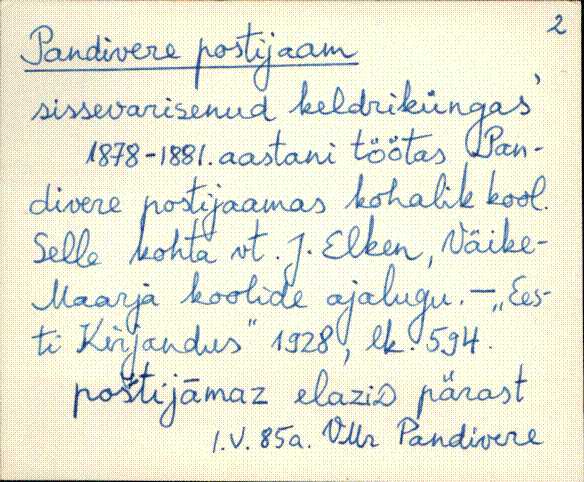 2
Pandivere postijaam
sissevarisenud keldriküngas'
1878-1881. aastani töötas Pan-
divere postijaamas kohalik kool.
Selle kohta vt. J. Elken, Väike-
Maarja koolide ajalugu. — „Ees-
ti Kirjandus" 1928, lk. 594.
poštijāmaz elazid pärast
I.V. 85a. VMr Pandivere